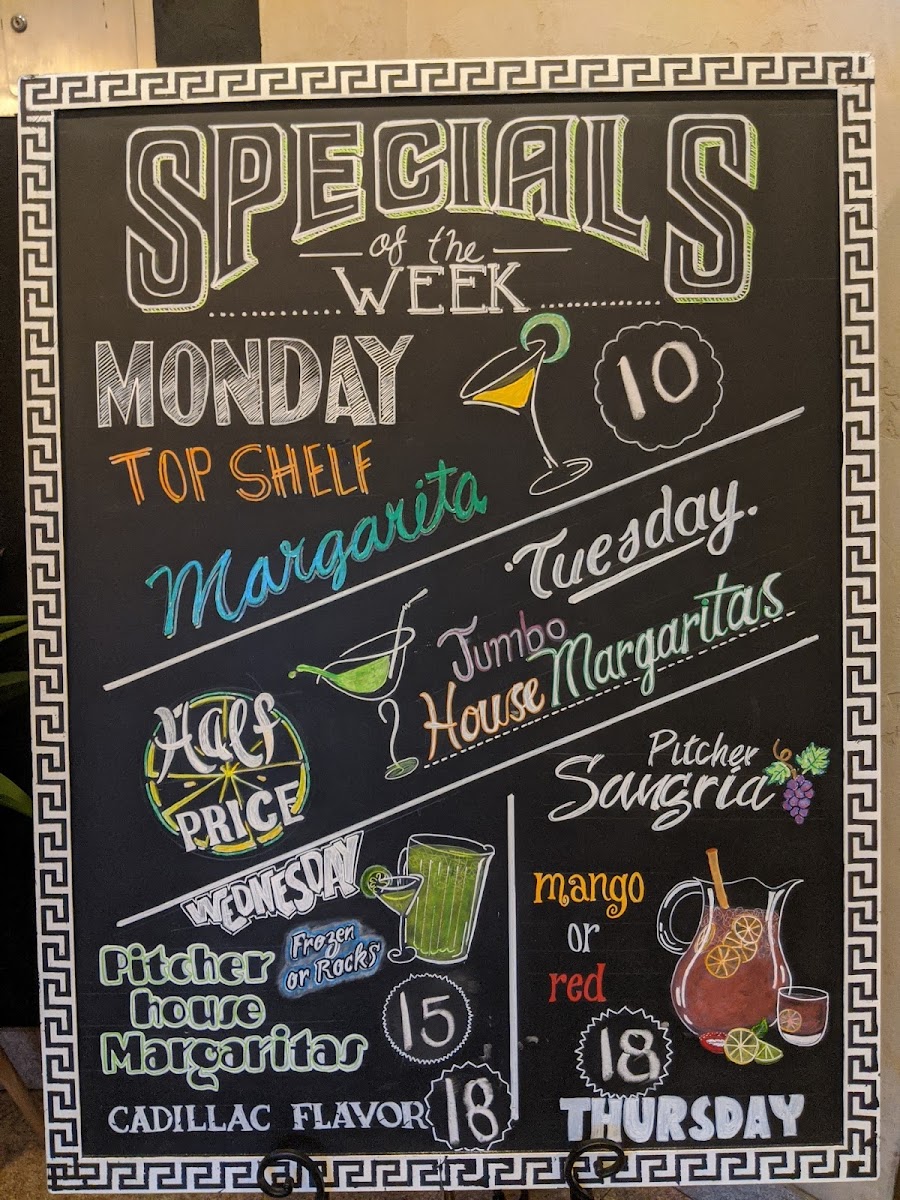 SPECIALS
of the
WEEK
MONDAY
10
TOP SHELF
Margarita
Tuesday.
Jumbo
House Margaritas
Half
PRICE
WEDNESDAY
Frozen
or Rocks
Pitcher
house
Margaritas
15
CADILLAC FLAVOR 18
Pitcher
Sangria
mango
or
red
18
THURSDAY